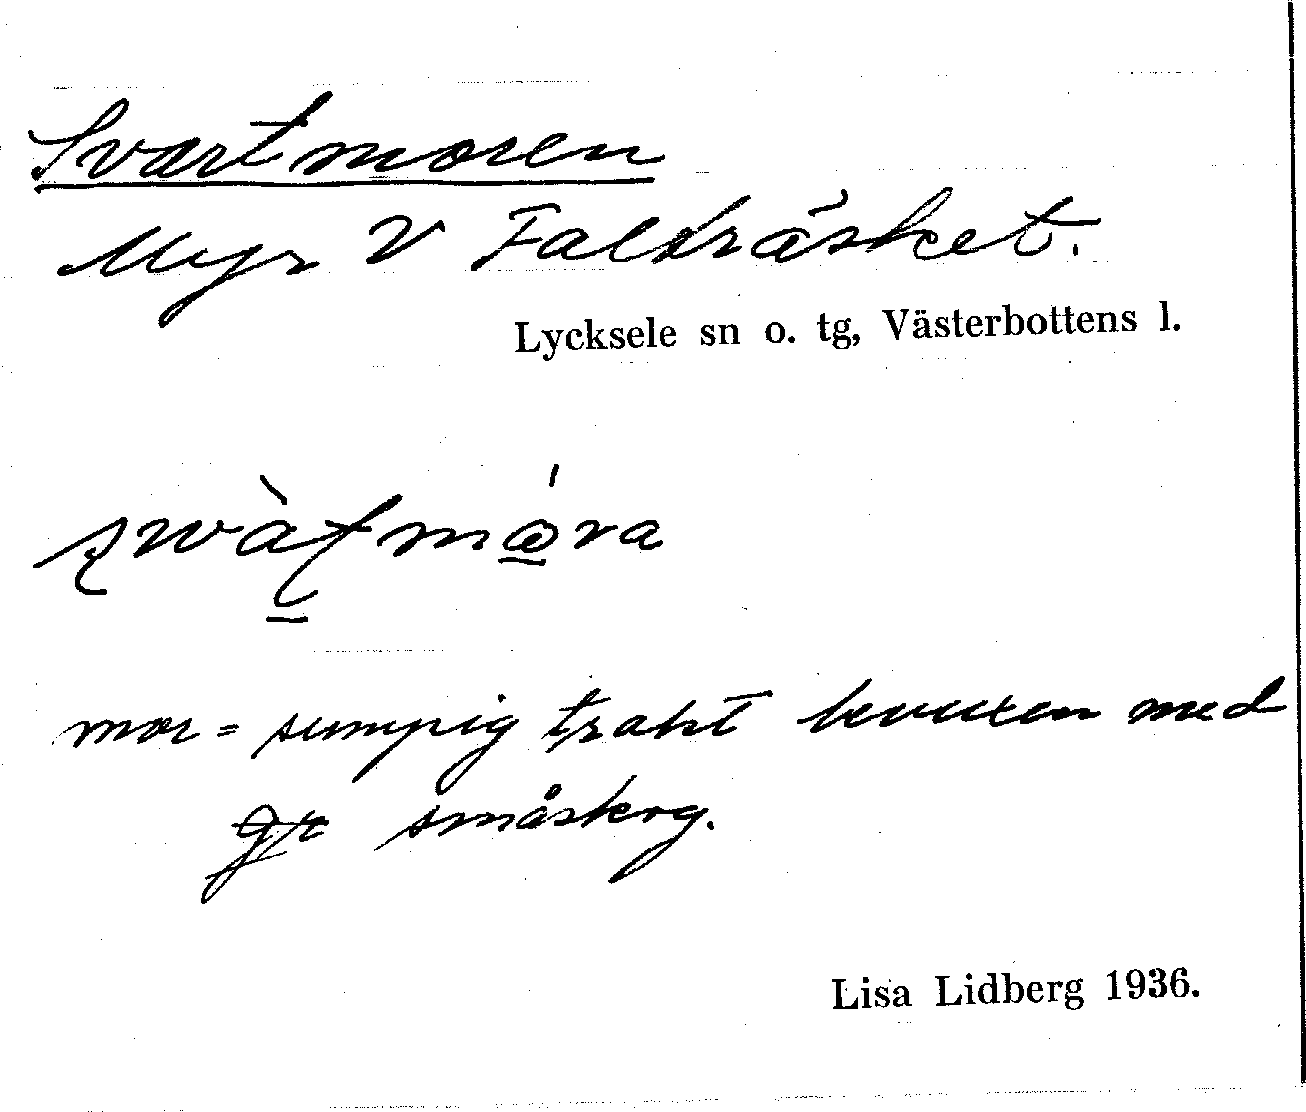 Svartmoren
Myr V Falträsket.
Lycksele sn o. tg, Västerbottens l.
mor = sumpig trakt bevuxen med
småskog.
Lisa Lidberg 1936.